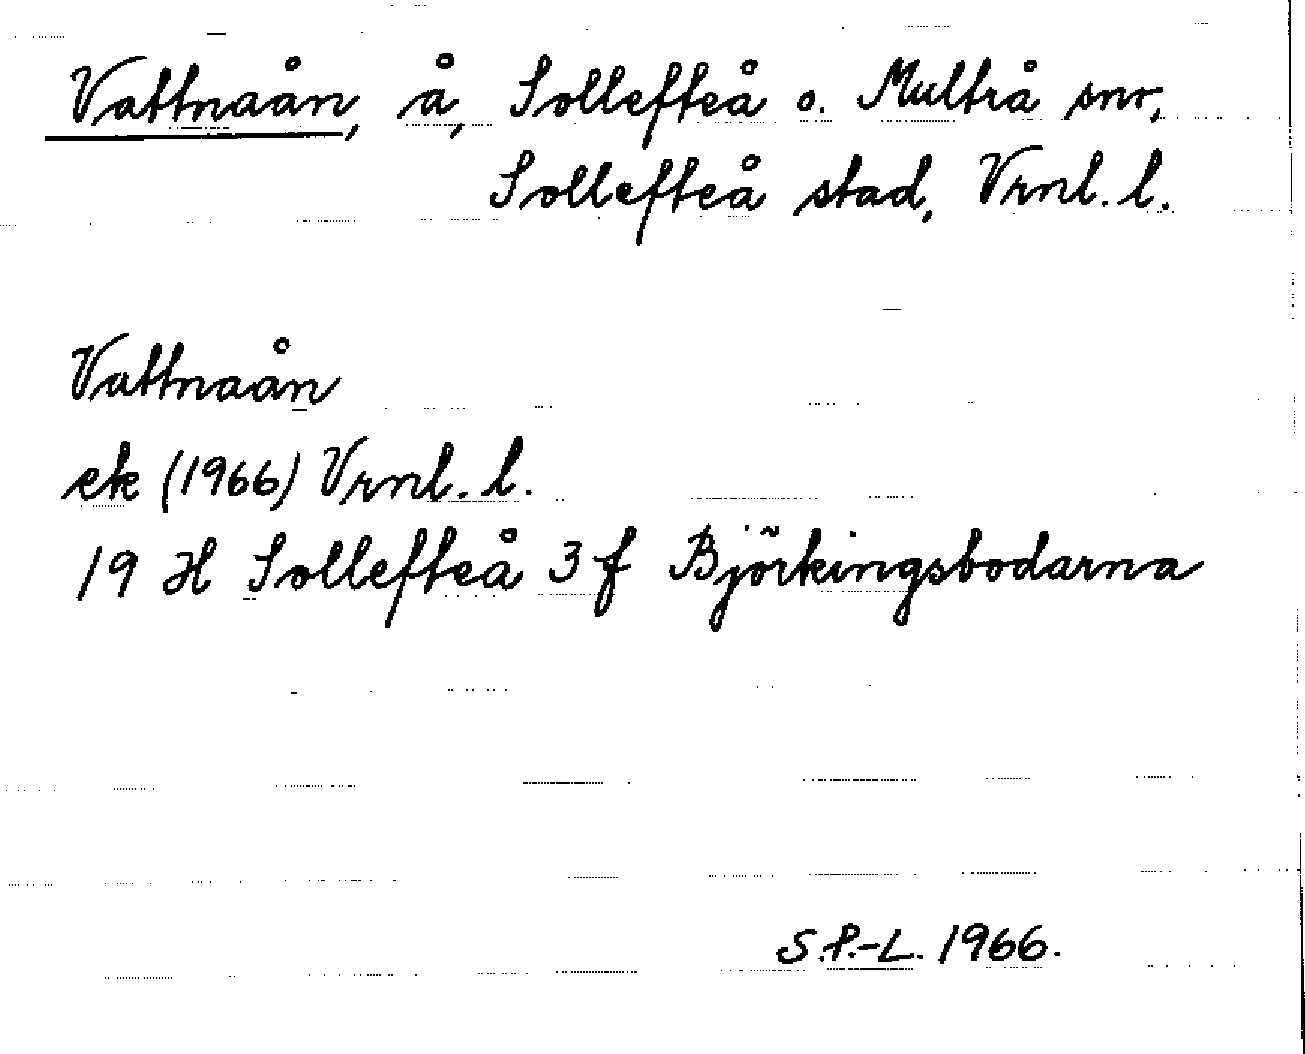 Vattnaån, å, Sollefteå o. Multrå snr,
Sollefteå stad, Vrnl. l.
Vattnaån
ek (1966) Vrnl. l.
19 H Sollefteå 3 f Björkingsbodarna
S.P.-L. 1966.